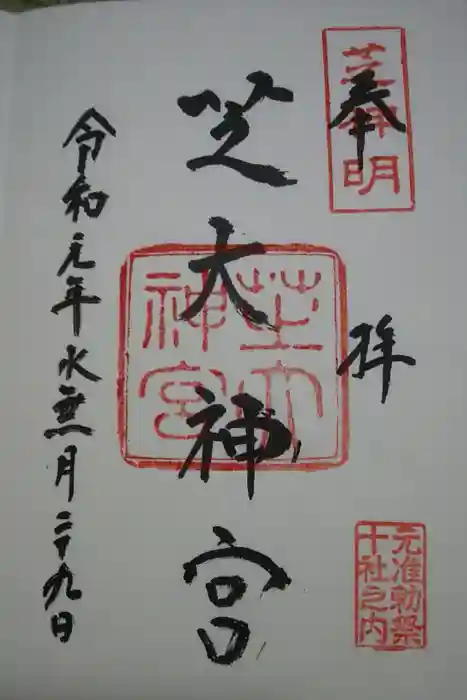 奉拝
芝神明
芝大神宮
芝大
神宮
令和元年水無月二十九日
元准勅祭
十社之内